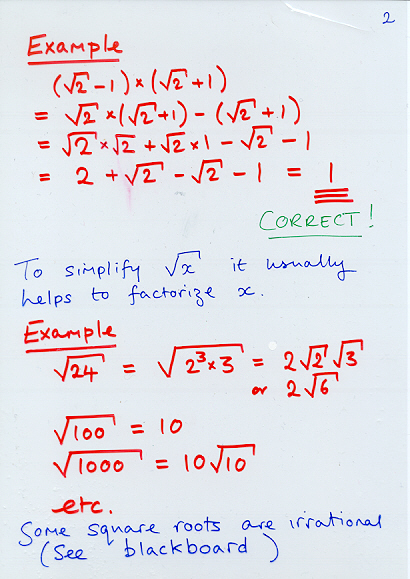 2
Example
(√2 - 1) × (√2 + 1)
= √2 × (√2 + 1) - (√2 + 1)
= √2 × √2 + √2 × 1 - √2 - 1
= 2 + √2 - √2 - 1 = 1
CORRECT!
To simplify √x it usually
helps to factorize x.
Example
√24 = √2³×3 = 2√2√3
or 2√6
√100 = 10
√1000 = 10√10
etc.
Some square roots are irrational
(See blackboard)